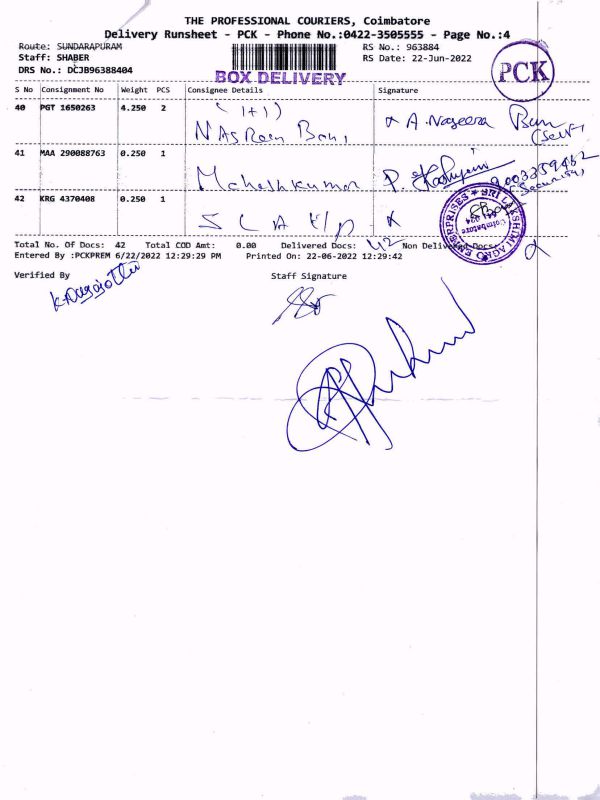 THE PROFESSIONAL COURIERS, Coimbatore
Delivery Runsheet - PCK - Phone No.:0422-3505555 - Page No.:4
Route: SUNDARAPURAM
Staff: SHABER
DRS No.: DCJB96388404
RS No.: 963884
RS Date: 22-Jun-2022
BOX DELIVERY
PCK
S No Consignment No Weight PCS Consignee Details Signature
40 PGT 1650263 4.250 2 (1+1)
Nasreen Banu A. Nageera Banu
(Self)
41 MAA 290088763 0.250 1
Maheshkumar P. 9003359462
(Security)
42 KRG 4370408 0.250 1
SRI LAKSHMI AGRO ENTERPRISES
Coimbatore
Total No. Of Docs: 42 Total COD Amt: 0.00 Delivered Docs: 42 Non Delivered Docs:
Entered By :PCKPREM 6/22/2022 12:29:29 PM Printed On: 22-06-2022 12:29:42
Verified By Staff Signature